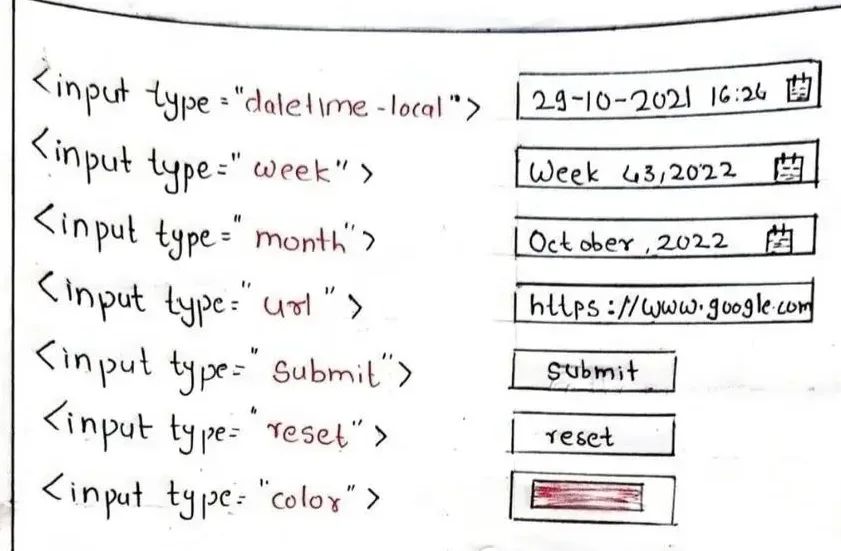 <input type="datetime-local"> 29-10-2021 16:26
<input type="week"> Week 43,2022
<input type="month"> October,2022
<input type="url"> https://www.google.com
<input type="Submit"> Submit
<input type="reset"> reset
<input type="color">